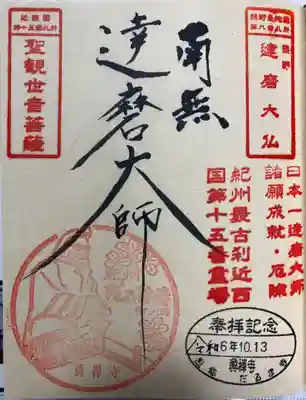 南無
達磨大師
熊野
達磨大仏
近畿圏
第十五番札所
聖観世音菩薩
日本一達磨大師
諸願成就・厄除
紀州最古刹近西
国第十五番霊場
奉拝記念
令和6年10.13
興禅寺
だるま寺
興禅寺